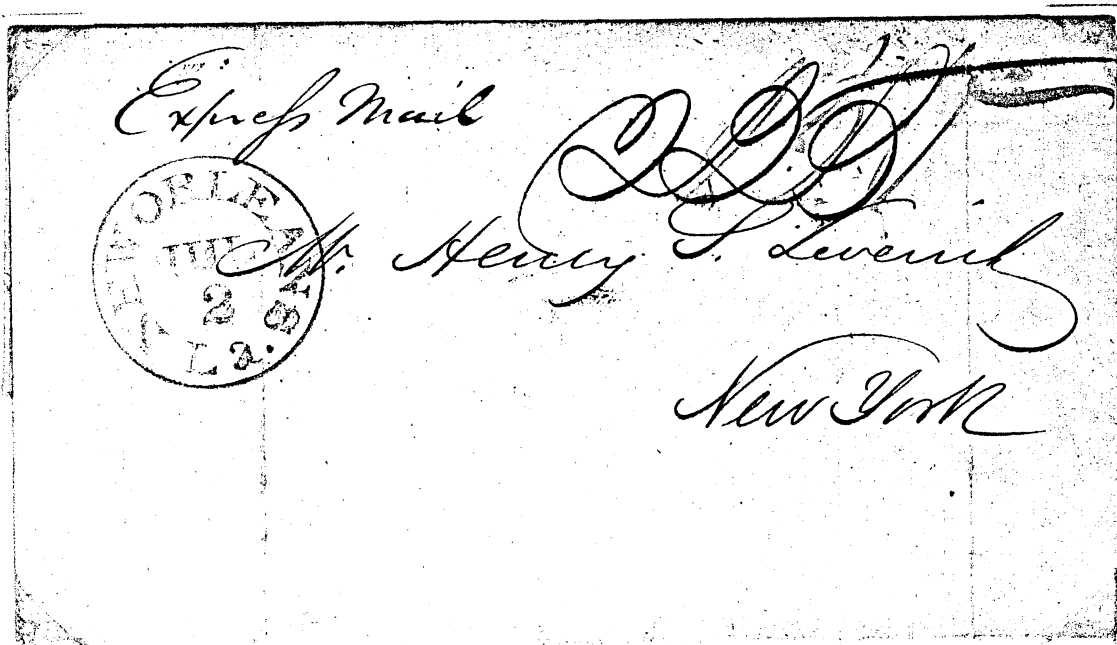 Express Mail
NEW ORLEANS La.
JUL
2
Mr. Henry S. Leverich
New York